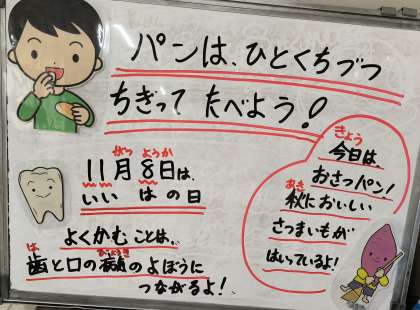 パンは、ひとくちづつ
ちぎって たべよう!
がつ ようか
11月8日は、
いい はの日
よくかむ ことは、
は びょうき
歯と口の病気のよぼうに
つながるよ!
きょう
今日は、
おさつパン!
あき
秋においしい
さつまいもが
はいっているよ!